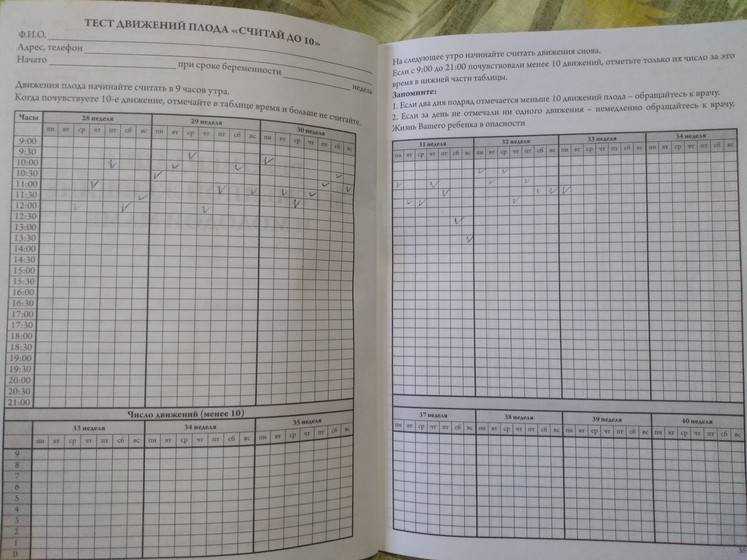 ТЕСТ ДВИЖЕНИЙ ПЛОДА «СЧИТАЙ ДО 10»
Ф.И.О.
Адрес, телефон
Начато при сроке беременности неделя
Движения плода начинайте считать в 9 часов утра.
Когда почувствуете 10-е движение, отмечайте в таблице время и больше не считайте.
Часы 28 неделя 29 неделя 30 неделя
пн вт ср чт пт сб вс пн вт ср чт пт сб вс пн вт ср чт пт сб вс
9:00
9:30
10:00
10:30
11:00
11:30
12:00
12:30
13:00
13:30
14:00
14:30
15:00
15:30
16:00
16:30
17:00
17:30
18:00
18:30
19:00
19:30
20:00
20:30
21:00
Число движений (менее 10)
33 неделя 34 неделя 35 неделя
пн вт ср чт пт сб вс пн вт ср чт пт сб вс пн вт ср чт пт сб вс
9
8
7
6
5
4
3
2
1
0
На следующее утро начинайте считать движения снова.
Если с 9:00 до 21:00 почувствовали менее 10 движений, отметьте только их число за это
время в нижней части таблицы.
Запомните:
1. Если два дня подряд отмечается меньше 10 движений плода – обращайтесь к врачу.
2. Если за день не отмечали ни одного движения – немедленно обращайтесь к врачу,
Жизнь Вашего ребенка в опасности
31 неделя 32 неделя 33 неделя 34 неделя
пн вт ср чт пт сб вс пн вт ср чт пт сб вс пн вт ср чт пт сб вс пн вт ср чт пт сб вс
37 неделя 38 неделя 39 неделя 40 неделя
пн вт ср чт пт сб вс пн вт ср чт пт сб вс пн вт ср чт пт сб вс пн вт ср чт пт сб вс